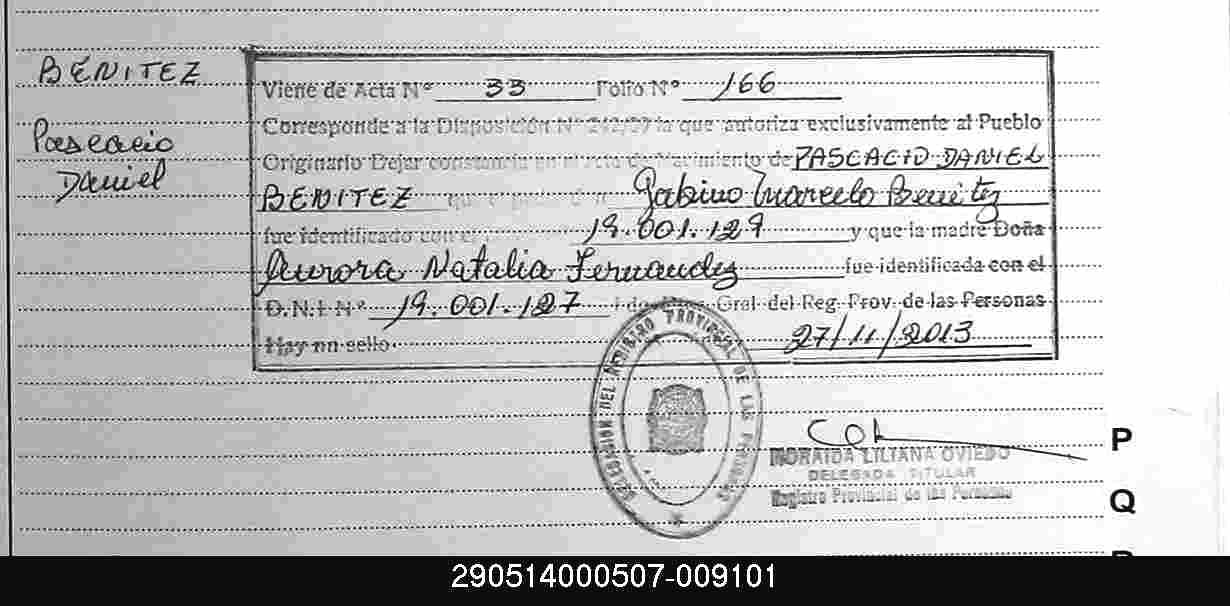 BENITEZ
Pascacio
Daniel
Viene de Acta Nº 33 Folio Nº 166
Corresponde a la Disposición Nº 242/09 la que autoriza exclusivamente al Pueblo
Originario Dejar constancia en el Acta de Nacimiento de PASCACIO DANIEL
BENITEZ que el padre Gabino Marcelo Benitez
fue identificado con el 19.001.129 y que la madre Doña
Aurora Natalia Fernandez fue identificada con el
D.N.I Nº 19.001.127 Gral del Reg. Prov. de las Personas
Hay un sello 27/11/2013
DELEGACION DEL REGISTRO PROVINCIAL DE LAS PERSONAS
MORAIDA LILIANA OVIEDO
DELEGADA TITULAR
Registro Provincial de las Personas
P
Q
290514000507-009101